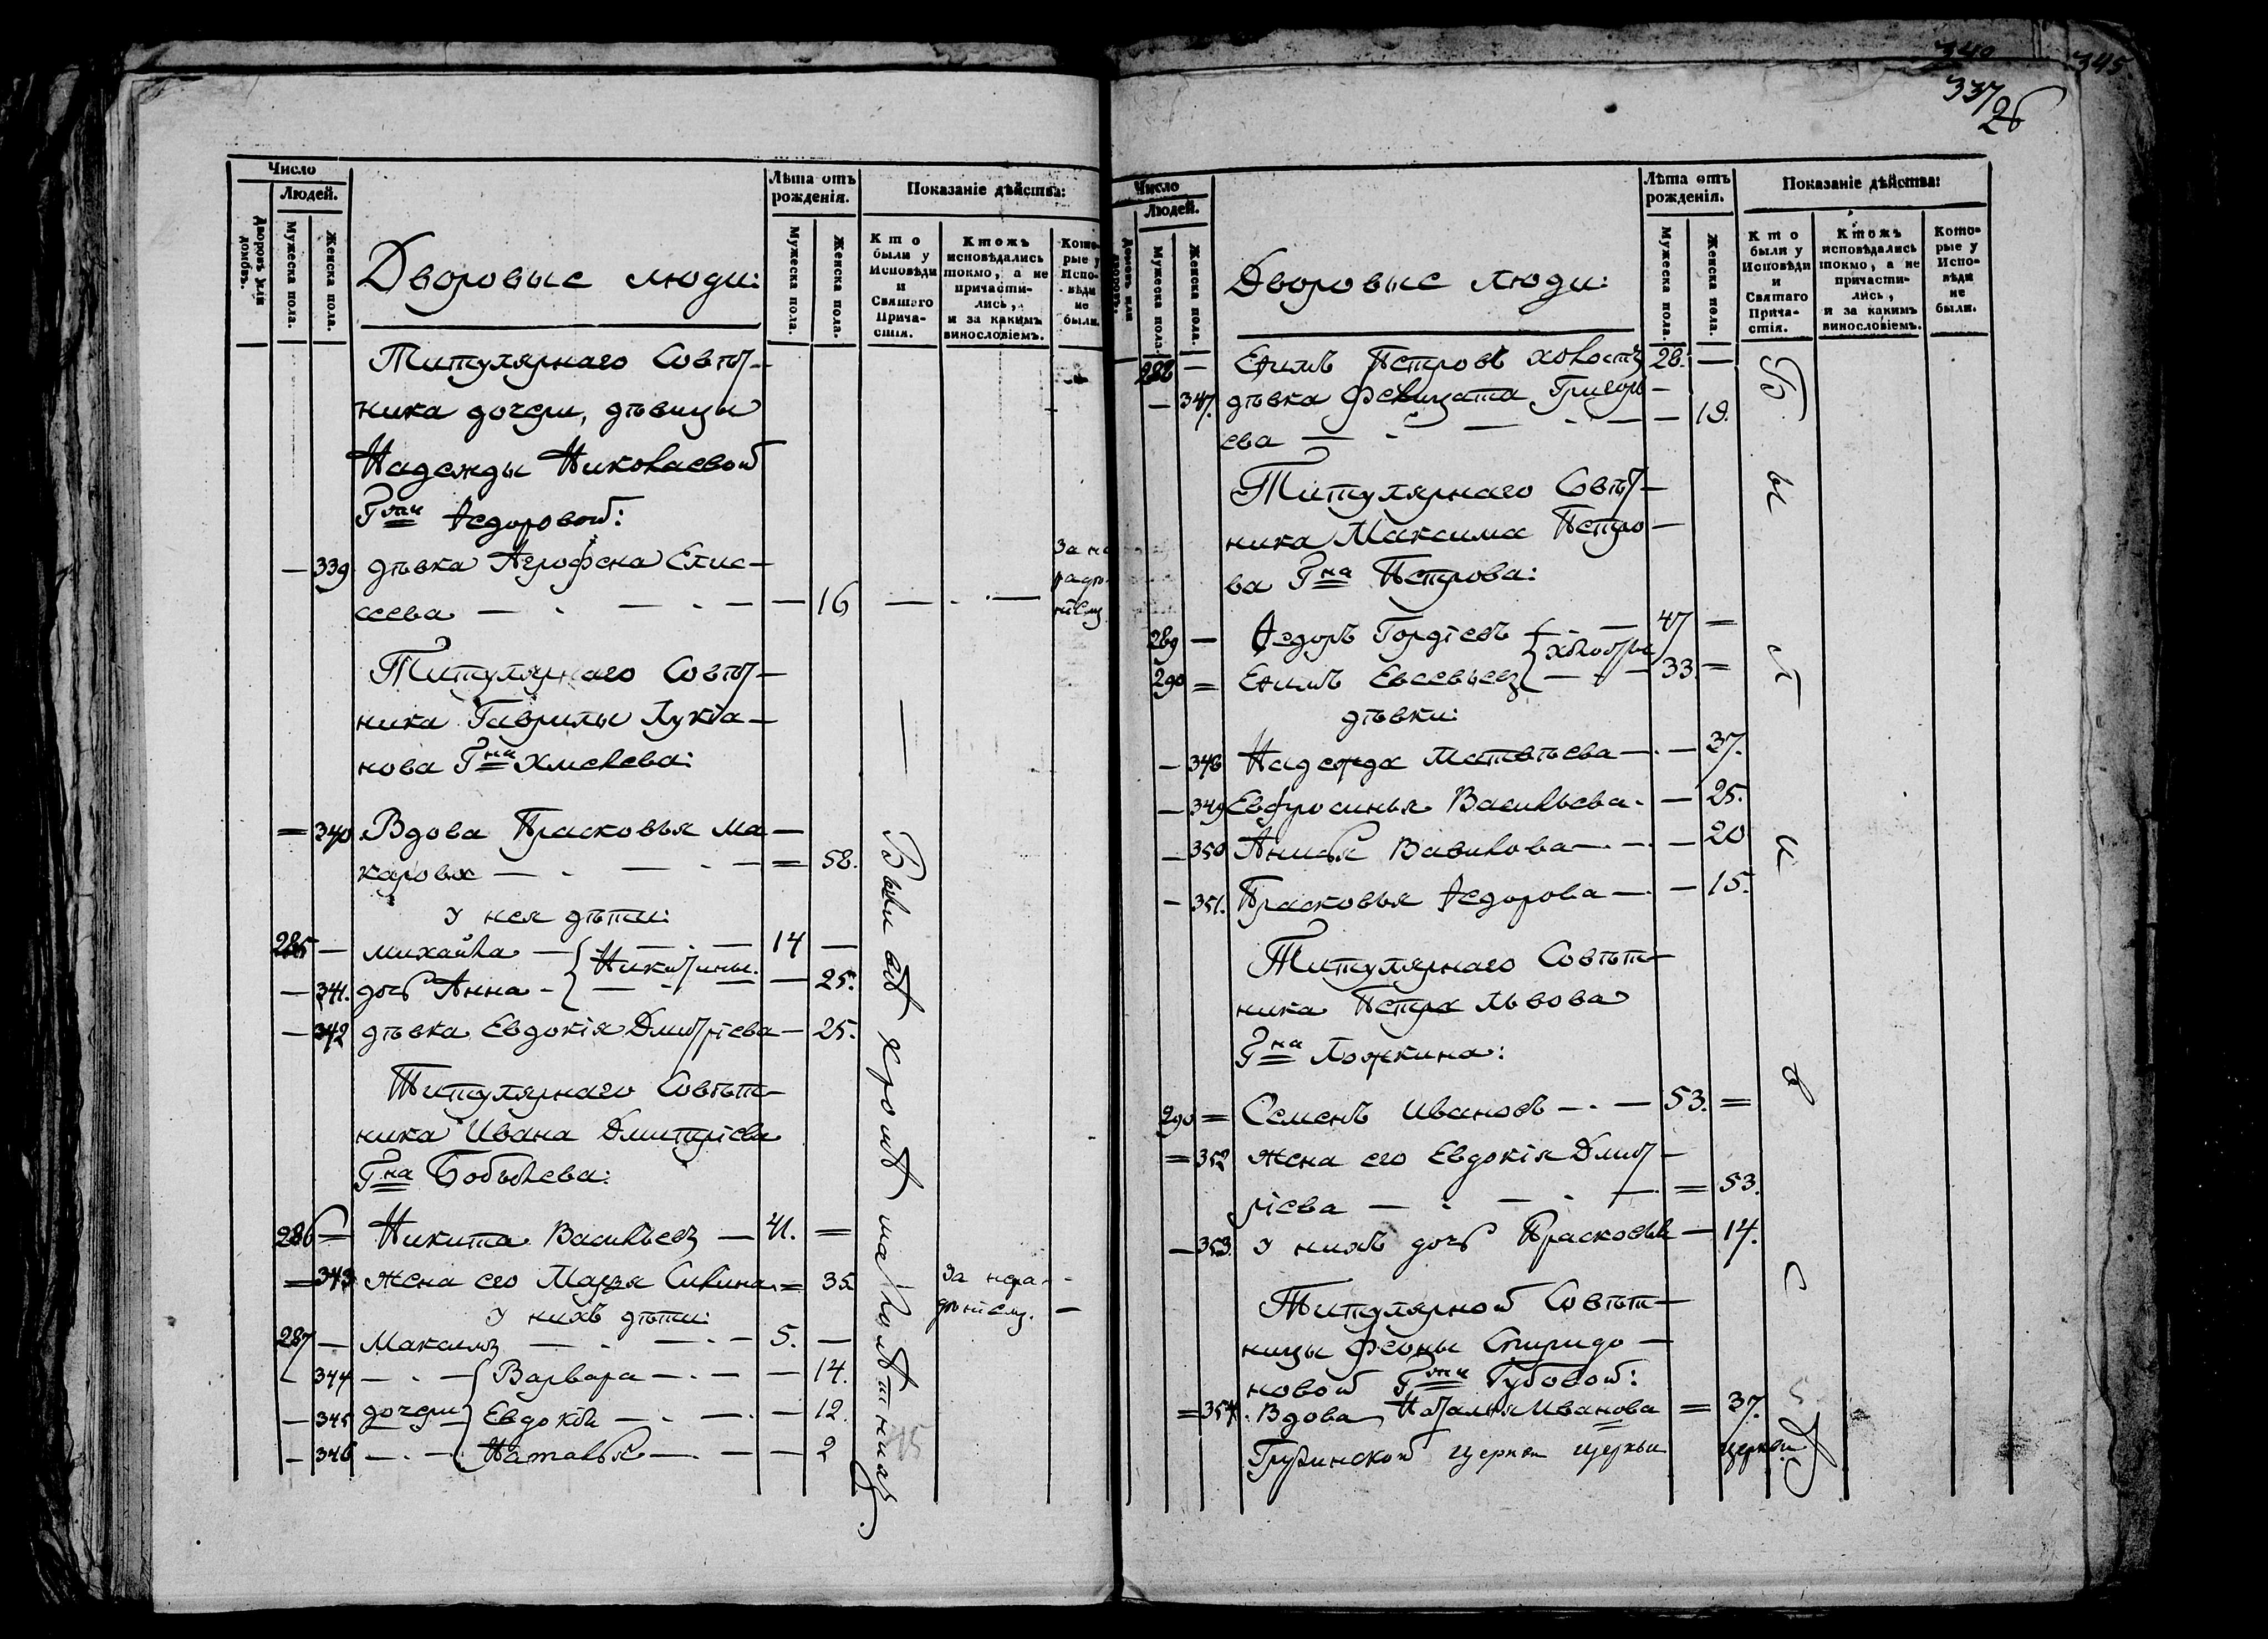 340
345
337/26
Число
Людей.
Дворовъ или домовъ.
Мужеска пола.
Женска пола.
Дворовые люди:
Лѣта отъ рожденія.
Мужеска пола.
Женска пола.
Показаніе дѣйства:
Кто были у Исповѣди и Святаго Прича-стія.
Ктожъ исповѣдались токмо, а не причасти-лись, и за какимъ винословіемъ.
Кото-рые у Испо-вѣди не были.
Титулярнаго Совѣт-
ника дочери, дѣвицы
Надежды Николаевой
Гжи Ѳедоровой:
— 339 дѣвка Агрофена Елис-
сеева — — — 16 —
Титулярнаго Совѣт-
ника Гаврилы Лукіа-
нова Гна Хмелева:
= 340 Вдова Прасковья Ма-
карова — — = 58.
у нея дѣти:
285 — Михайла — 14 —
Никитины.
— 341. дочь Анна — — 25.
— 342 дѣвка Евдокія Дмитріева — 25.
Титулярнаго Совѣт-
ника Ивана Дмитріева
Гна Бобылева:
286 = Никита Васильевъ — 41. =
= 343 жена его Марѳа Силина = 35 За нера-
дѣніемъ. —
у нихъ дѣти:
287 — Максимъ — 5. —
— 344 — Варвара — — 14.
— 345 дочери Евдокія — — 12.
— 346 — Наталья — — 2
Были всѣ кромѣ малолѣтнихъ.
Число
Людей.
Домовъ или дворовъ.
Мужеска пола.
Женска пола.
Дворовые люди:
Лѣта отъ рожденія.
Мужеска пола.
Женска пола.
Показаніе дѣйства:
Кто были у Исповѣди и Святаго Прича-стія.
Ктожъ исповѣдались токмо, а не причасти-лись, и за какимъ винословіемъ.
Кото-рые у Испо-вѣди не были.
288 — Ефимъ Петровъ холостъ 28. —
— 347. дѣвка Фелицата Григорь-
ева — — — 19.
Титулярнаго Совѣт-
ника Максима Петро-
ва Гна Петрова:
289 — Ѳедоръ Гордіевъ — 47 =
холосты
290 = Ефимъ Евсевьевъ — 33. =
дѣвки:
— 348 Надежда Матвѣева — — 37.
— 349 Евфросинья Васильева — 25.
— 350 Анисья Вавилова — — 20
— 351. Прасковья Ѳедорова — — 15.
Титулярнаго Совѣт-
ника Петра Львова
Гна Ложкина:
290 = Семенъ Ивановъ — 53. =
= 352 жена его Евдокія Дмит-
ріева — — = 53.
— 353. у нихъ дочь Прасковья — 14.
Титулярной Совѣт-
ницы Феоны Спиридо-
новой Гжи Губовой:
= 354. Вдова Наталья Иванова = 37.
Грузинской церкви церкви